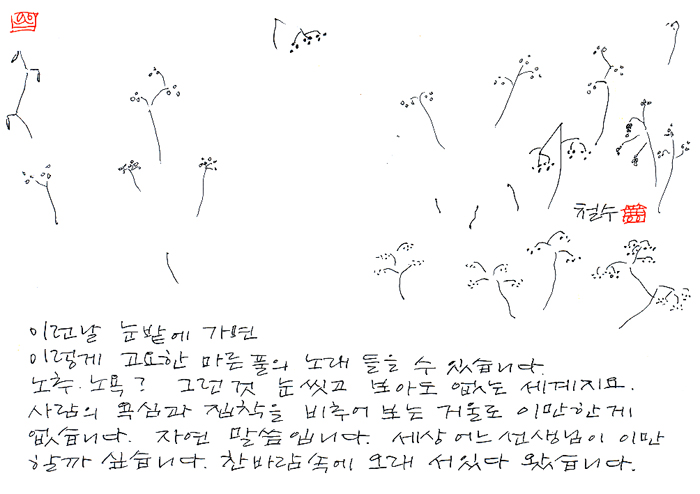 철수
이런날 눈밭에 가면
이렇게 고요한 마른 풀의 노래 들을 수 있습니다.
노추·노욕? 그런것 눈 씻고 보아도 없는 세계지요.
사람의 욕심과 집착을 비추어 보는 거울로 이만한게
없습니다. 자연 말씀입니다. 세상 어느 선생님이 이만
할까 싶습니다. 찬바람 속에 오래 서있다 왔습니다.